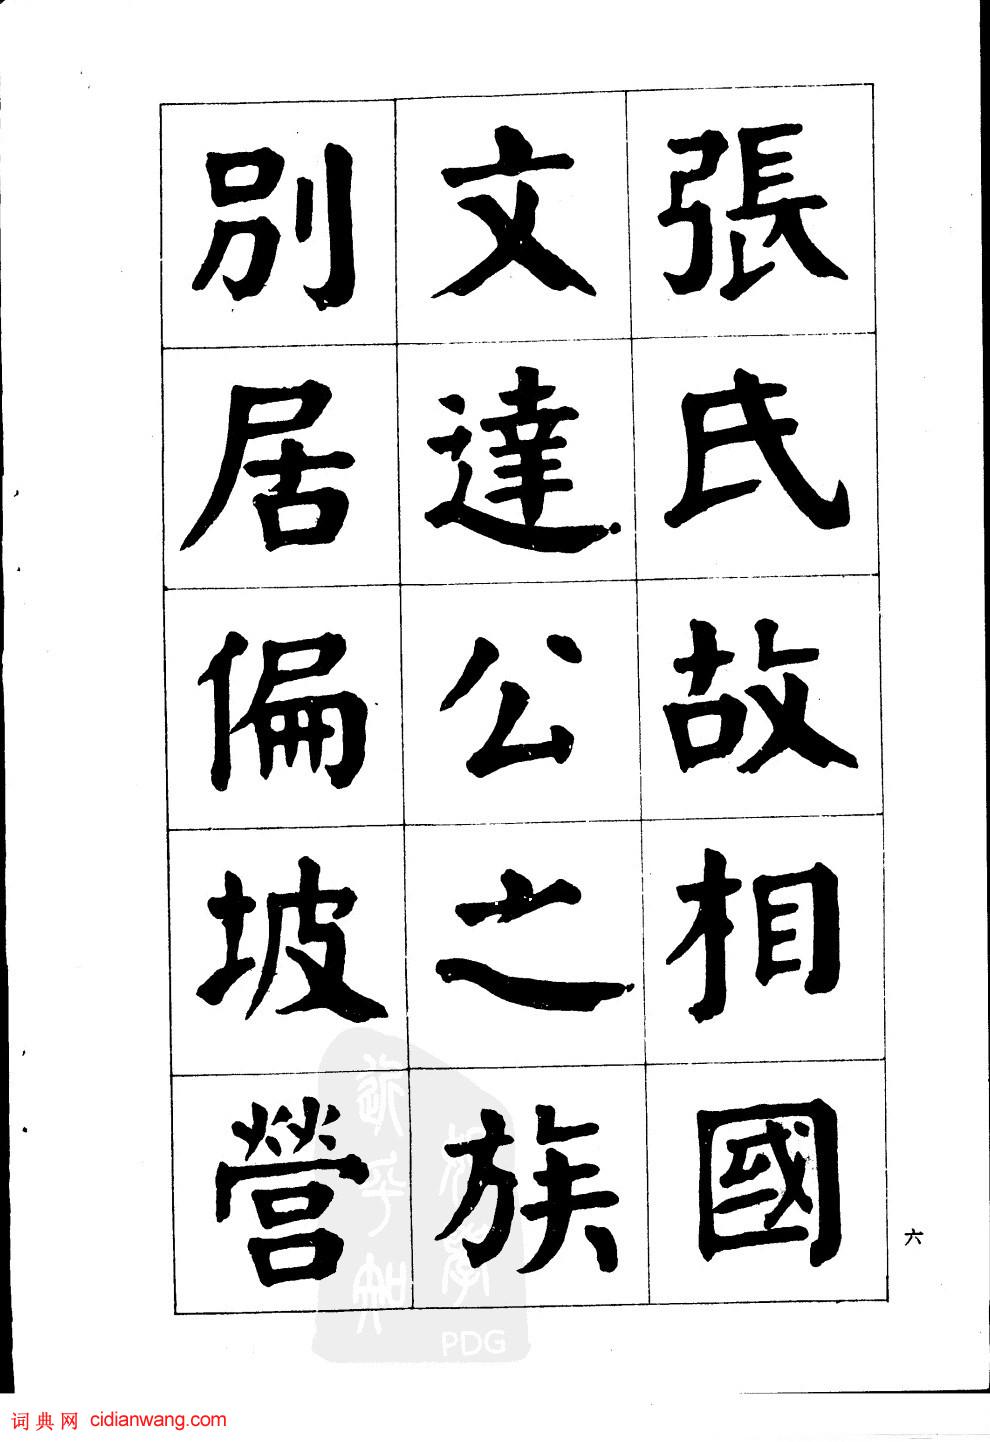 張氏故相國
文達公之族
別居偏坡營
六
PDG
词典网 cidianwang.com